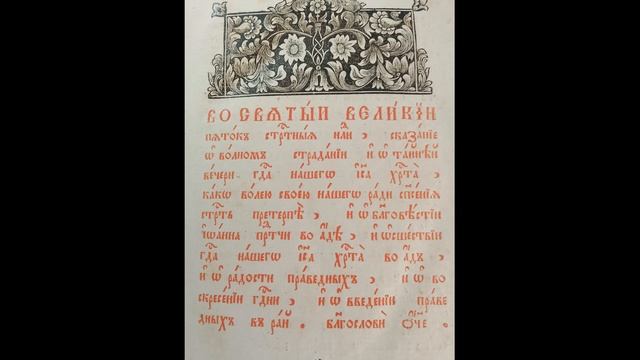 ВО СВѦТЫ́И ВЕЛИ́КЇИ
пѧто́къ стрⷭ҇тныѧ нⷣли , сказа́нїе
ѡ҆ во́лномъ страда́нїи и҆ ѡ҆ та́йнѣй
ве́чери гдⷭ҇а на́шегѡ і҆с҃а хрⷭ҇та̀ ,
ка́кѡ во́лею свое́ю на́шегѡ ра́ди спⷭ҇е́нїѧ
стрⷭ҇ть претерпѣ̀ , и҆ ѡ҆ бл҃говѣ́стїи
і҆ѡа́нна прⷣтчи во а҆́дѣ , и҆ ѡ҆сше́ствїи
гдⷭ҇а на́шегѡ і҆с҃а хрⷭ҇та̀ во а҆́дъ ,
и҆ ѡ҆ ра́дости пра́ведныхъ , и҆ ѡ҆ во
скресе́нїи гдⷭ҇ни , и҆ ѡ҆ введе́нїи пра́ве
дныхъ в ра́й . бл҃гословѝ ѻ҆́ч҃е .